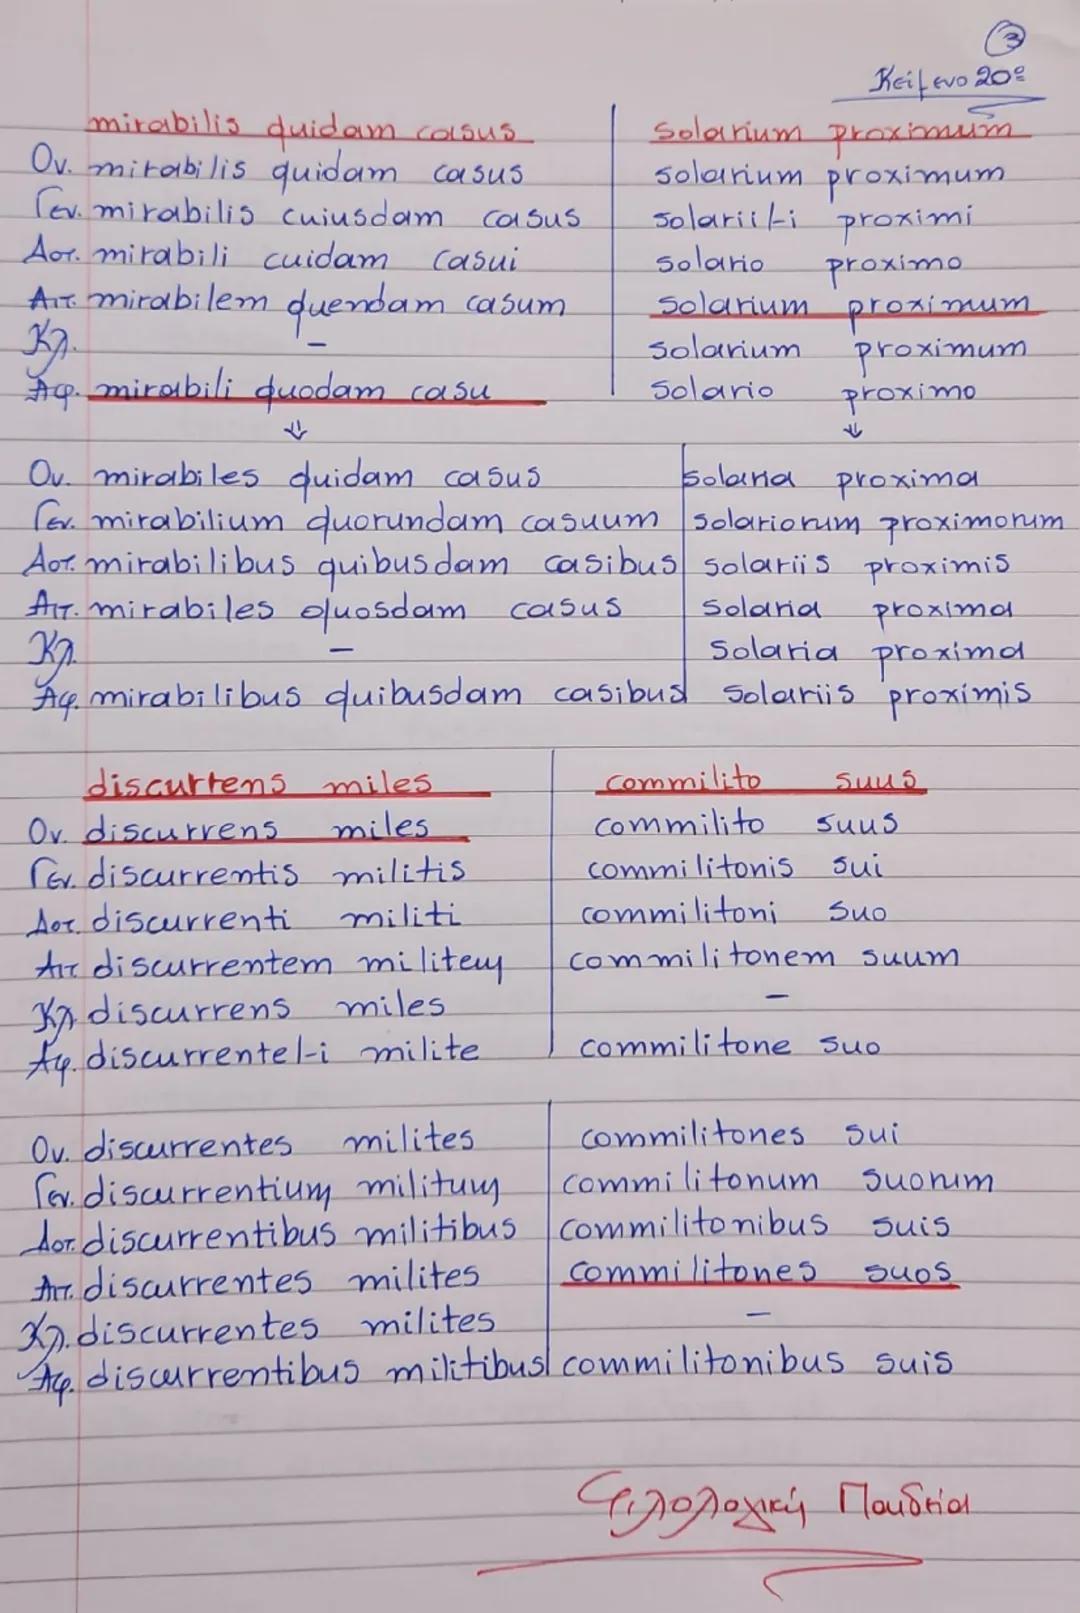 3
Κείμενο 20º
mirabilis quidam casus solarium proximum
Ον. mirabilis quidam casus solarium proximum
Γεν. mirabilis cuiusdam casus solarii/-i proximi
Δοτ. mirabili cuidam casui solario proximo
Αιτ. mirabilem quendam casum solarium proximum
Κλ. – solarium proximum
Αφ. mirabili quodam casu solario proximo
Ον. mirabiles quidam casus solaria proxima
Γεν. mirabilium quorundam casuum solariorum proximorum
Δοτ. mirabilibus quibusdam casibus solariis proximis
Αιτ. mirabiles quosdam casus solaria proxima
Κλ. – solaria proxima
Αφ. mirabilibus quibusdam casibus solariis proximis
discurrens miles commilito suus
Ον. discurrens miles commilito suus
Γεν. discurrentis militis commilitonis sui
Δοτ. discurrenti militi commilitoni suo
Αιτ discurrentem militem commilitonem suum
Κλ discurrens miles –
Αφ. discurrente/-i milite commilitone suo
Ον. discurrentes milites commilitones sui
Γεν. discurrentium militum commilitonum suorum
Δοτ. discurrentibus militibus commilitonibus suis
Αιτ. discurrentes milites commilitones suos
Κλ. discurrentes milites –
Αφ. discurrentibus militibus commilitonibus suis
Φιλολογική Παιδεία